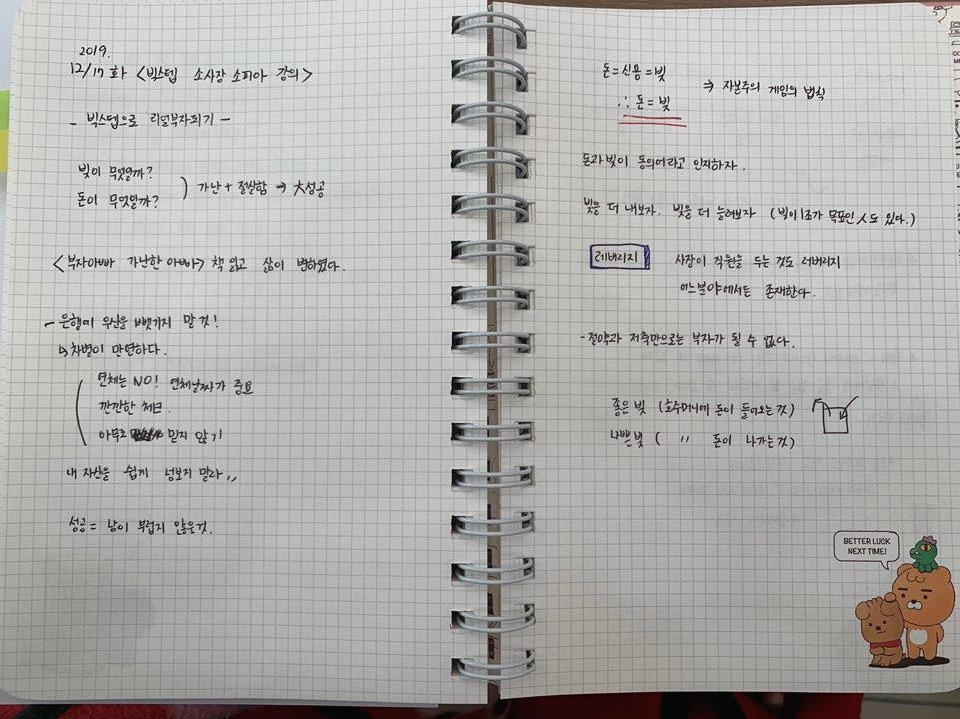 2019.
12/17 화 <빅스텝 소사장 소피아 강의>
- 빅스텝으로 리얼부자되기 -
빚이 무엇일까?
돈이 무엇일까?
) 가난 + 절발함 → 大성공
<부자아빠 가난한 아빠> 책 읽고 삶이 변하였다.
- 은행에 우산을 뺏기지 말 것!
↳ 차별이 만연하다.
연체는 NO! 연체날짜가 중요
깐깐한 체크.
아무도 믿지 않기
내 자산을 쉽게 넘보지 말라,,
성공 = 남이 부럽지 않은것.
돈=신용=빚
∴ 돈=빚
⇒ 자본주의 게임의 법칙
돈과 빚이 동의어라고 인지하자.
빚을 더 내보자. 빚을 더 늘려보자 (빚이 1조가 목표인 人도 있다.)
레버리지
사장이 직원을 두는 것도 레버리지
어느분야에서든 존재한다.
- 절약과 저축만으로는 부자가 될 수 없다.
좋은 빚 (호주머니에 돈이 들어오는것)
나쁜빚 ( 〃 돈이 나가는것)
BETTER LUCK
NEXT TIME!